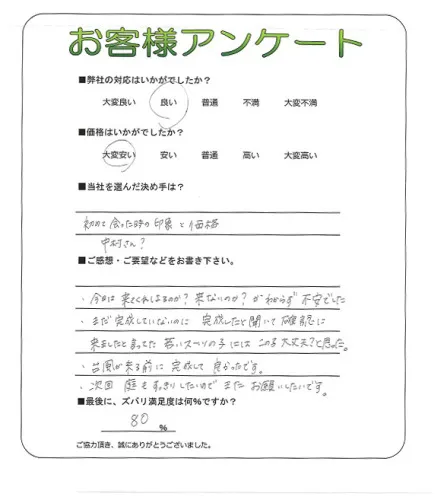 お客様アンケート
■弊社の対応はいかがでしたか？
大変良い 良い 普通 不満 大変不満
■価格はいかがでしたか？
大変安い 安い 普通 高い 大変高い
■当社を選んだ決め手は？
初めて会った時の印象と価格
中村さん？
■ご感想・ご要望などをお書き下さい。
・今日は来てくれるのか？来ないのか？かわからず不安でした
・まだ完成していないのに 完成したと聞いて確認に
来ましたと言ってた若いスーツの子にはこの子大丈夫？と思った。
・台風が来る前に完成して良かったです。
・次回 庭もすっきりしたいので またお願いしたいです。
■最後に、ズバリ満足度は何％ですか？
80 %
ご協力頂き、誠にありがとうございました。